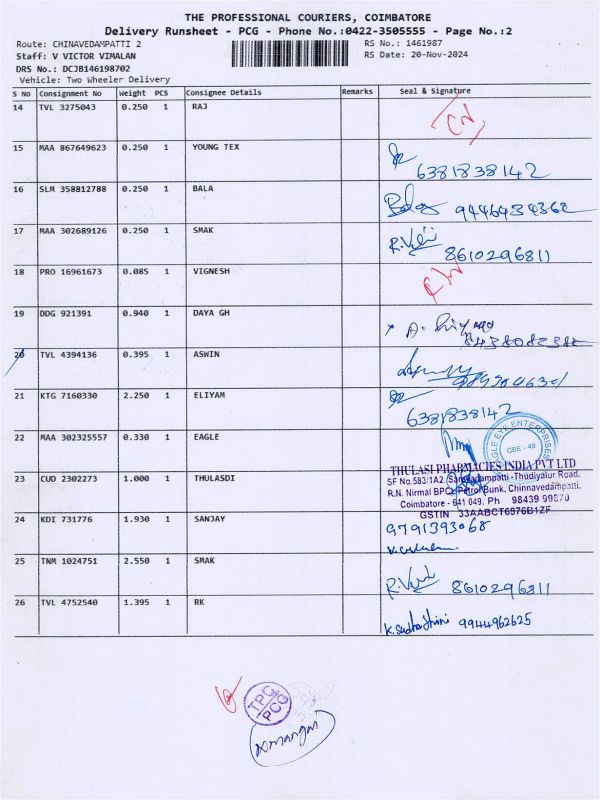 THE PROFESSIONAL COURIERS, COIMBATORE
Delivery Runsheet - PCG - Phone No.:0422-3505555 - Page No.:2
Route: CHINAVEDAMPATTI 2
RS No.: 1461987
Staff: V VICTOR VIMALAN
RS Date: 20-Nov-2024
DRS No.: DCJB146198702
Vehicle: Two Wheeler Delivery
S No Consignment No Weight PCS Consignee Details Remarks Seal & Signature
14 TVL 3275043 0.250 1 RAJ
15 MAA 867649623 0.250 1 YOUNG TEX 6381838142
16 SLM 358812788 0.250 1 BALA Bala 9446434362
17 MAA 302689126 0.250 1 SMAK 8610296811
18 PRO 16961673 0.085 1 VIGNESH
19 DDG 921391 0.940 1 DAYA GH
20 TVL 4394136 0.395 1 ASWIN
21 KTG 7160330 2.250 1 ELIYAM 6381838142
22 MAA 302325557 0.330 1 EAGLE
EAGLE EYE ENTERPRISES
CBE - 49
23 CUD 2302273 1.000 1 THULASDI
THULASI PHARMACIES INDIA PVT LTD
SF No.583/1A2, Saravadampatti -Thudiyalur Road,
R.N. Nirmal BPCL Petrol Bunk, Chinnavedampatti,
Coimbatore - 641 049. Ph 98439 99870
GSTIN 33AABCT6976B1ZF
24 KDI 731776 1.930 1 SANJAY 9791393068
25 TNM 1024751 2.550 1 SMAK 8610296811
26 TVL 4752540 1.395 1 RK K.Sudharshini 9944962625
TPC
PCG